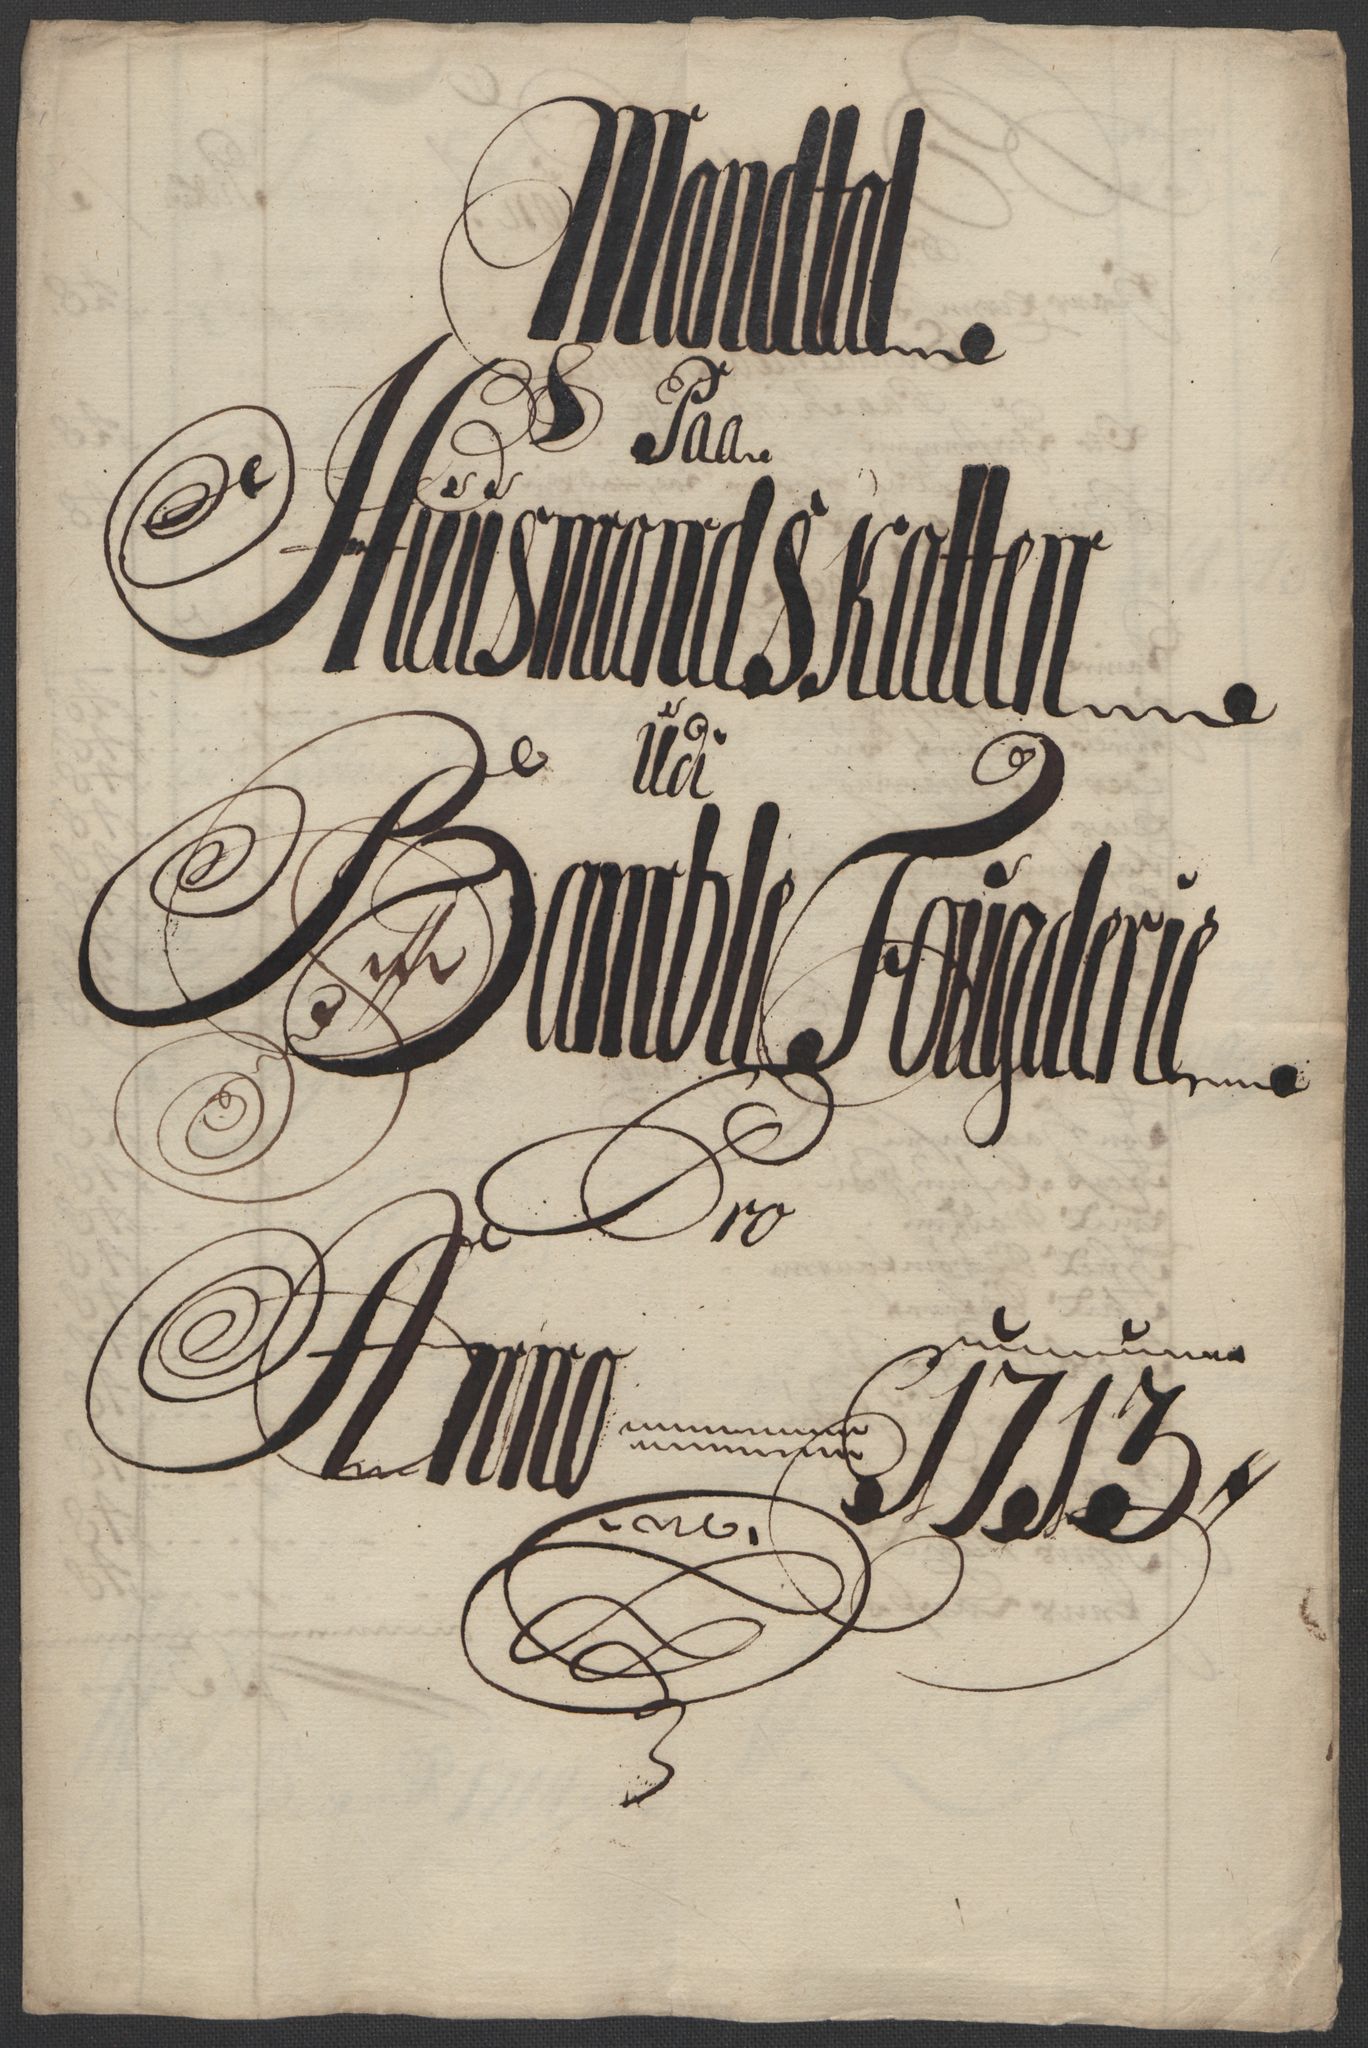 Mandtal
Paa
Hüüsmand Skatten
üdi
Bamble Fougderie
Pro
Anno 1713